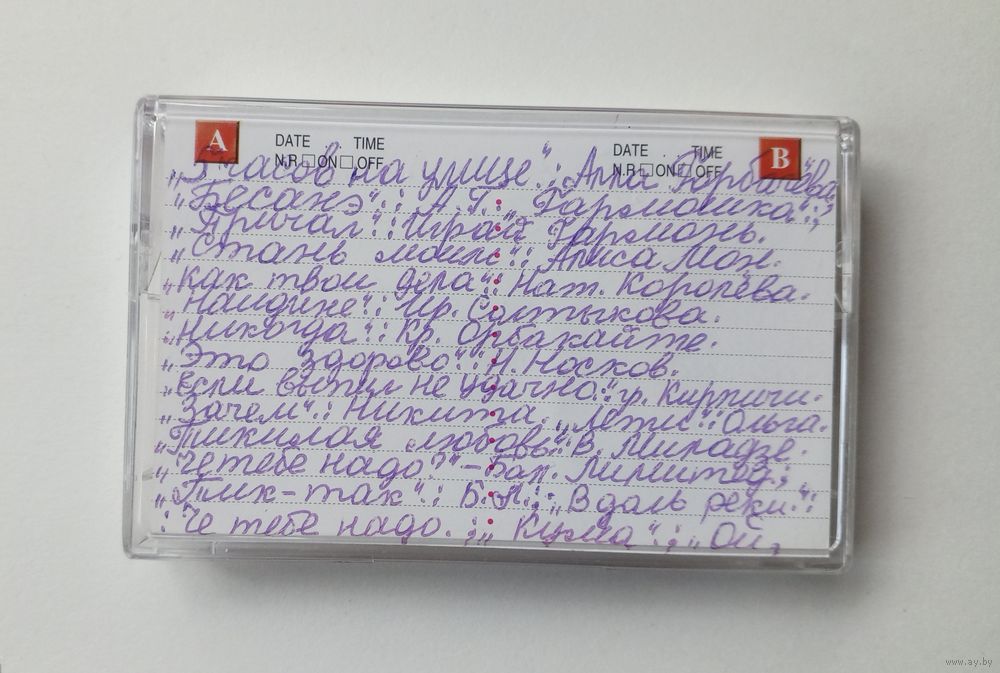 A DATE TIME DATE TIME B
N.R □ ON □ OFF N.R □ ON □ OFF
"5 часов на улице".: Алла Горбачёва.
"Бесанэ".: А.Г.: "Гармошка".:
"Причал".: Играй Гармонь.
"Стань моим".: Алиса Мон.
"Как твои дела".: Нат. Королёва.
"Наидине".: Ир. Салтыкова.
"Никогда".: Кр. Орбакайте.
"Это здорово".: Н. Носков.
"Если вышел не удачно".: гр. Кирпичи.
"Зачем".: Никита. "Лети".: Ольга.
"Тикилая любовь". В. Миладзе.
"Че тебе надо?" - Бал. Лимитед.;
"Тик-так".: Б.Л.; "Вдоль реки".:
"Че тебе надо.:, "Кума".:, "Ой,
www.ay.by